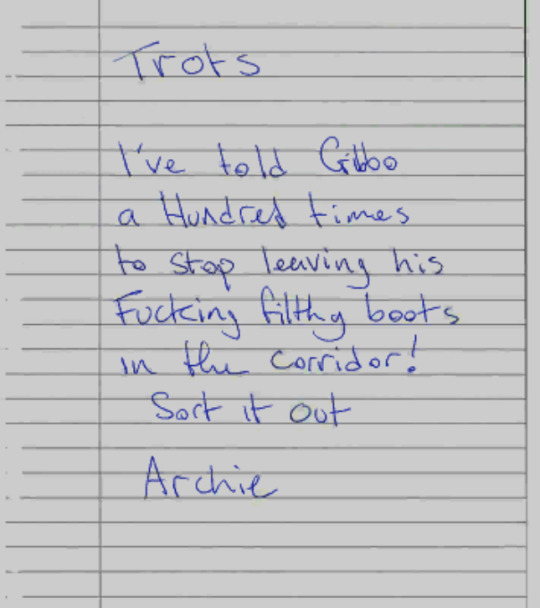 Trots
I've told Gibbo
a Hundred times
to stop leaving his
Fucking filthy boots
in the corridor!
Sort it out
Archie